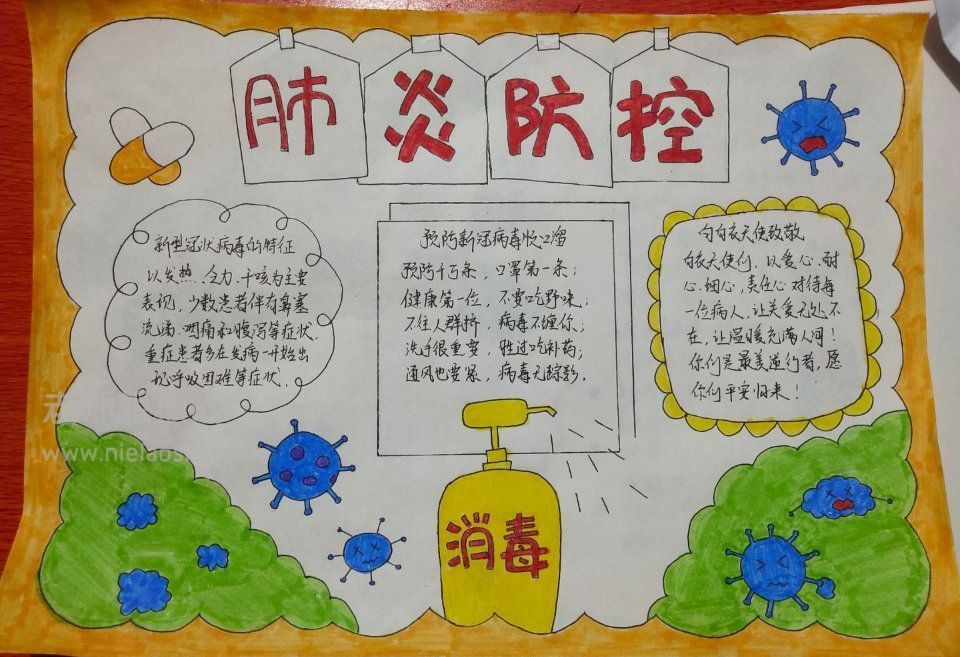 肺炎防控
新型冠状病毒的特征
以发热、乏力、干咳为主要
表现，少数患者伴有鼻塞
流涕、咽痛和腹泻等症状，
重症患者多在发病一开始出
现呼吸困难等症状.
预防新冠病毒
预防千万条，口罩第一条；
健康第一位，不要吃野味；
不往人群挤，病毒不缠你；
洗手很重要，胜过吃补药；
通风也要紧，病毒无踪影.
向白衣天使致敬
白衣天使们，以爱心、耐
心、细心，责任心对待每
一位病人，让关爱无处不
在，让温暖充满人间！
你们是最美逆行者，愿
你们平安归来！
www.nielaos
消毒